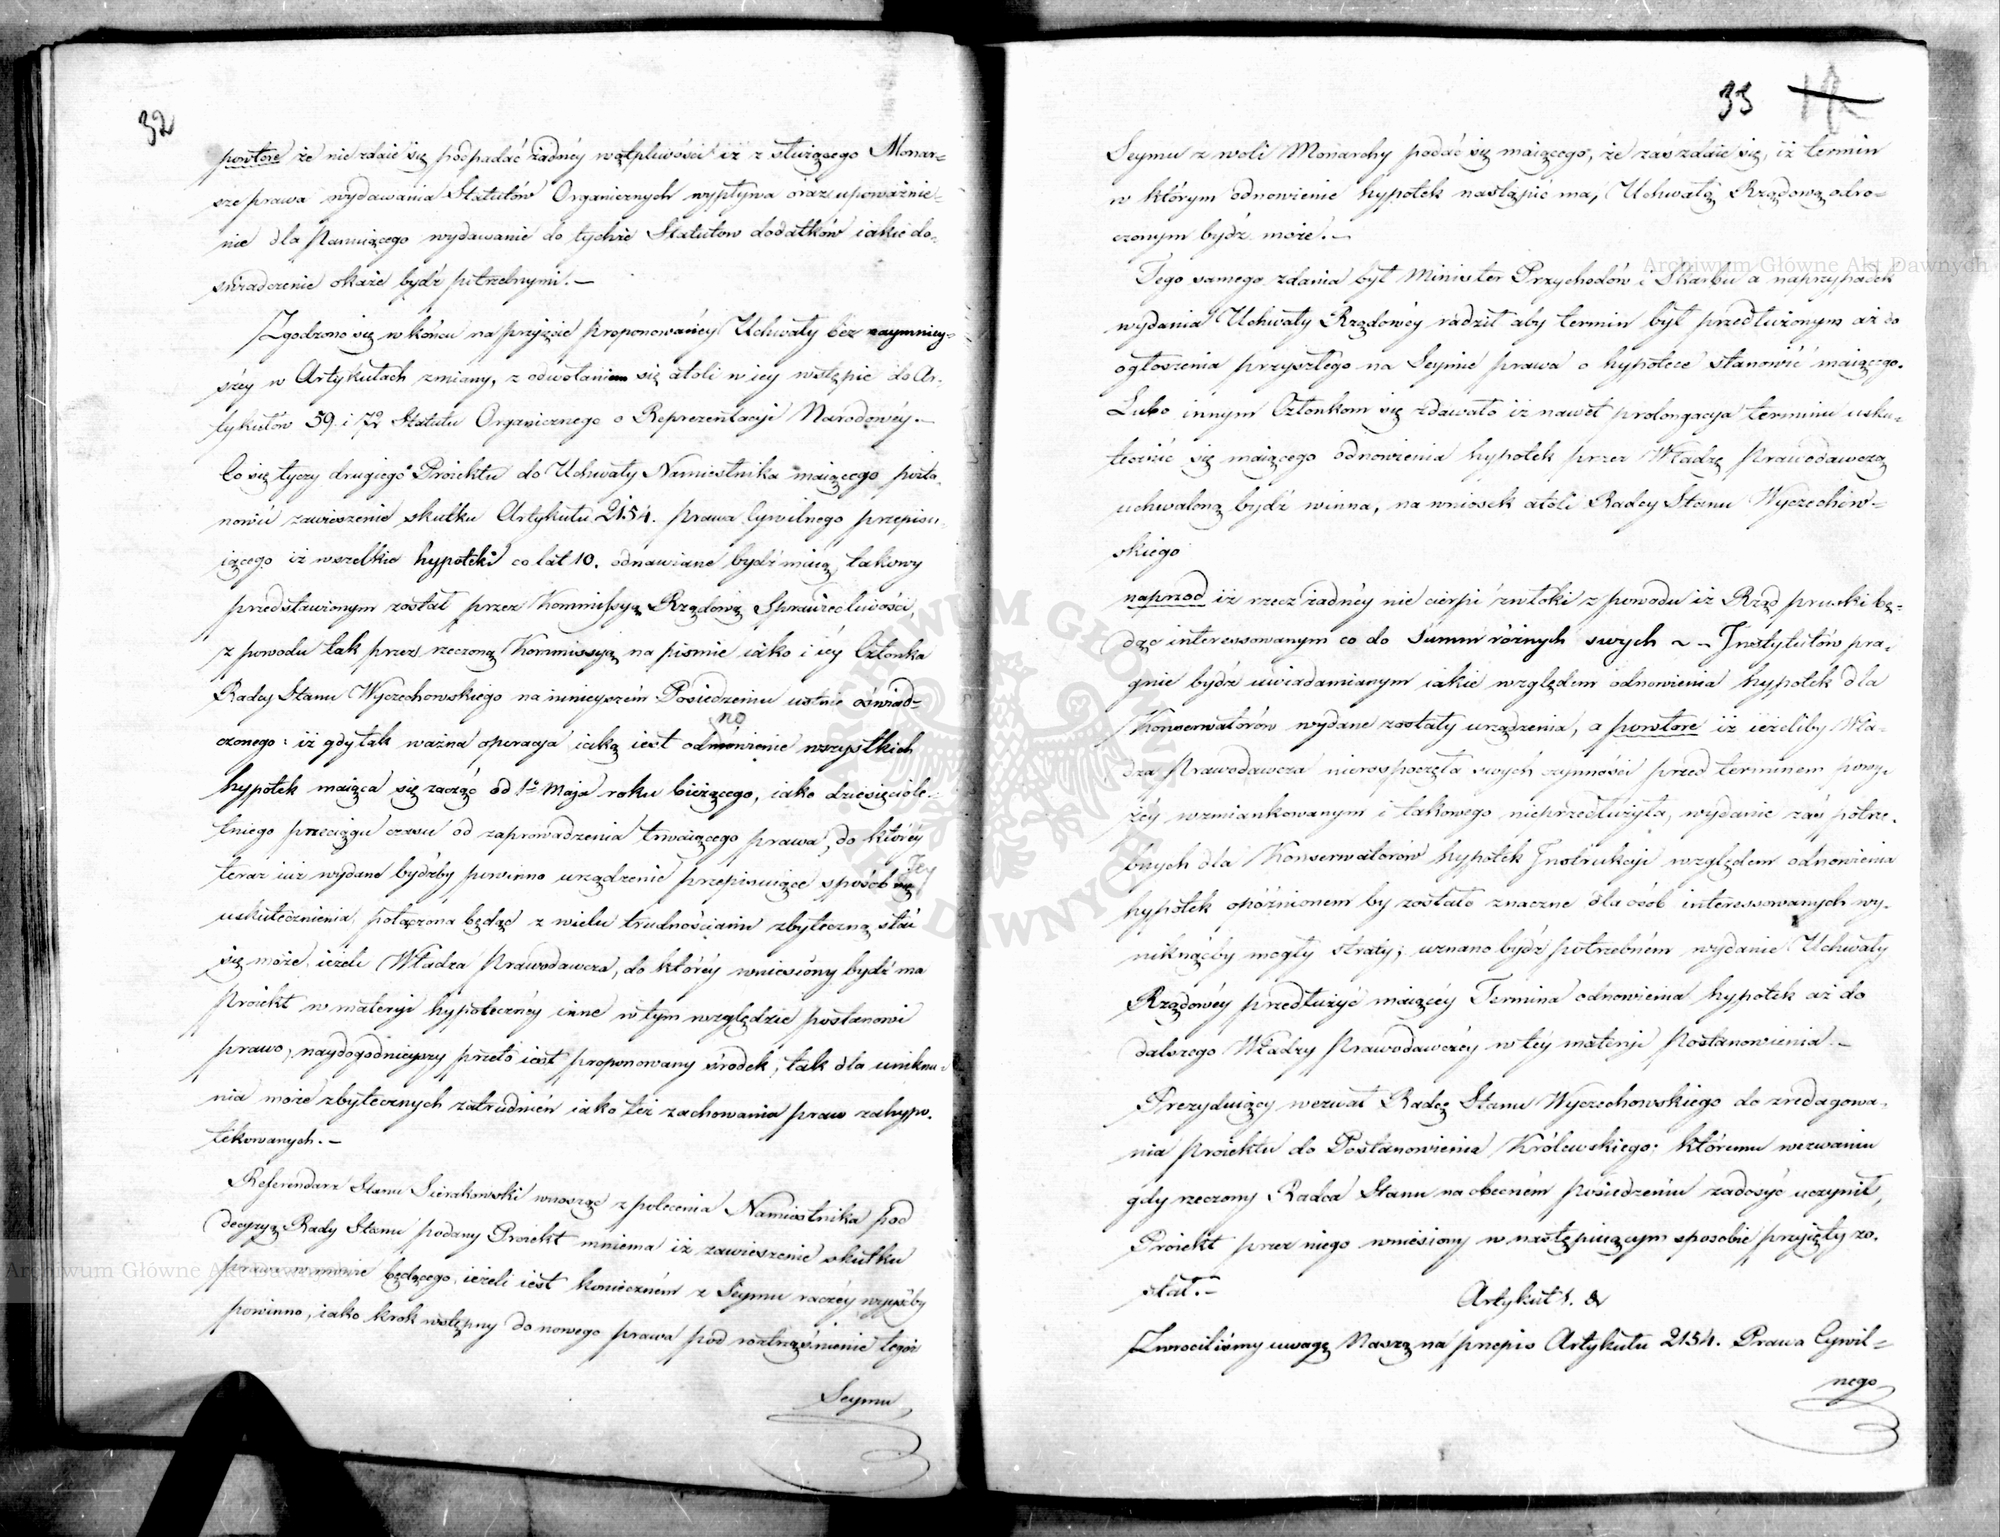 32
powtore że nie zdaie się podpadać żadnéy wątpliwości iż z służącego Monar=
sze prawa wydawania Statutów Organicznych wypływa oraz upoważnie=
nie dla Panuiącego wydawanie do tychże Statutow dodatków iakie do=
swiadczenie okaże bydź potrzebnymi. —
Zgodzono się w końcu na przyięcie proponowanéy Uchwały bez naymniey=
széy w Artykułach zmiany, z odwołaniem się atoli w iey wstępie do Ar=
tykułów 59. i 72 Statutu Organicznego o Reprezentacyi Narodowéy. —
Co się tyczy drugiego Proiektu do Uchwały Namiestnika maiącego posta=
nowić zawieszenie skutku Artykułu 2154. prawa Cywilnego przepisu=
iącego iż wszelkie hypoteki co lat 10. odnawiane bydź maią, takowy
przedstawionym został przez Kommissyą Rządową Sprawiedliwości,
z powodu tak przez rzeczoną Kommissyą na pismie iako i iéy Członka
Radcy Stanu Wyczechowskiego na ninieyszém Posiedzeniu ustnie oświad=
no
czonego: iż gdy tak ważna operacya iaką iest odmówienie wszystkich
hypotek maiąca się zacząć od 1o Maja roku bieżącego, iako dziesięciole=
tniego przeciągu czasu od zaprowadzenia trwaiącego prawa, do któréy
teraz iuż wydane bydźby powinno urządzenie przepisuiące sposób Jey
uskutecznienia, połączona będąc z wielu trudnościami zbyteczną stać
się może, ieżeli Władza Prawodawcza, do któréy wniesiony bydź ma
Proiekt w materyi hypotecznéy inne w tym względzie postanowi
prawo, naydogodnieyszy przeto iest proponowany srodek, tak dla uniknie=
nia może zbytecznych zatrudnień iako też zachowania praw zahypo=
tekowanych. —
Referendarz Stanu Sierakowski wnosząc z polecenia Namiestnika pod
decyzyą Rady Stanu podany Proiekt mniema iż zawieszenie skutku
prawa w mocie będącego, ieżeli iest koniecznem z Seymu raczéy wyyśćby
powinno, iako krok wstępny do nowego prawa pod roztrząśnienie tegoż
Seymu
33
Seymu z woli Monarchy podać się maiącego, że zaś zdaie się, iż termin
w którym odnowienie hypotek nastąpić ma, Uchwałą Rządową odro=
czonym bydź może. —
Tego samego zdania był Minister Przychodów i Skarbu a naprzypadek
wydania Uchwały Rządowéy radził aby termin był przedłużonym aż do
ogłoszenia przyszłego na Seymie prawa o hypotece stanowić maiącego.
Lubo innym Członkom się zdawało iż nawet prolongacya terminu usku=
tecznić się maiącego odnowienia hypotek przez Władzę Prawodawczą
uchwaloną bydź winna, na wniosek atoli Radcy Stanu Wyczechow=
skiego
naprzod iż rzecz żadnéy nie cierpi zwłoki z powodu iż Rząd pruski bę=
dąc interessowanym co do Summ różnych swych ~ – Jnstytutów pra=
gnie bydź uwiadamianym iakie względem odnowienia hypotek dla
Konserwatorów wydane zostały urządzenia, a powtore iż ieżeliby Wła=
dza Prawodawcza nierozpoczęła swych czynności przed terminem powy=
żéy wzmiankowanym i takowego nieprzedłużyła, wydanie zaś potrze=
bnych dla Konserwatorów hypotek Jnstrukcyi względem odnowienia
hypotek opóźnionem by zostało znaczne dla osób interessowanych wy=
niknąćby mogły straty; uznano bydź potrzebném wydanie Uchwały
Rządowéy przedłużyć maiącéy Termina odnowienia hypotek aż do
dalszego Władzy Prawodawczéy w téy materyi Postanowienia. —
Prezyduiący wezwał Radcę Stanu Wyczechowskiego do zredagowa=
nia proiektu do Postanowienia Królewskiego; któremu wezwaniu
gdy rzeczony Radca Stanu na obecném posiedzeniu zadosyć uczynił,
Proiekt przez niego wniesiony w następuiącym sposobie przyięty zo=
stał. —
Artykuł 1. &
Zwrociliśmy uwagę Naszą na przepis Artykułu 2154. Prawa Cywil=
nego
Archiwum Główne Akt Dawnych
Archiwum Główne Akt Dawnych
ARCHIWUM GŁÓWNE AKT DAWNYCH